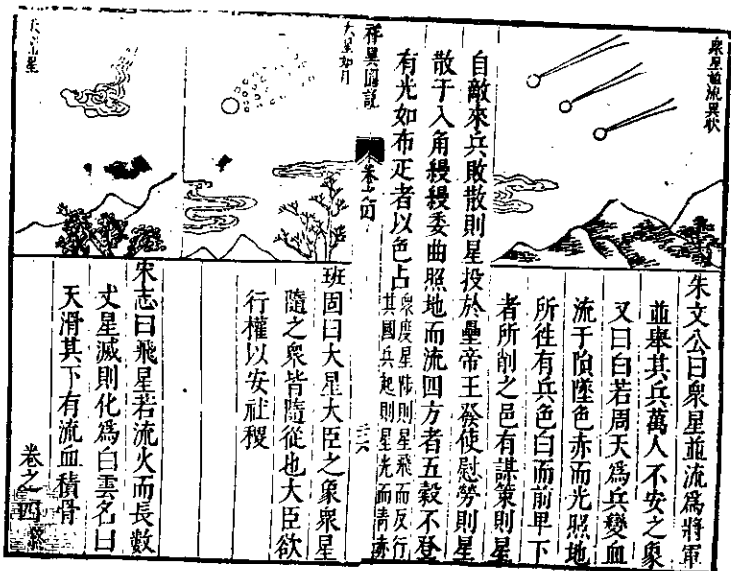 衆星並流異狀
朱文公曰衆星並流爲將軍
並舉其兵萬人不安之象
又曰白若周天爲兵變血
流于隕墜色赤而光照地
所徃有兵色白而前卑下
者所削之邑有謀策則星
自敵來兵敗散則星投於壘帝王發使慰勞則星
散于入角縵縵委曲照地而流四方者五穀不登
有光如布疋者以色占衆度星陟則星飛而反行
其國兵起則星光而青赤
祥異圖說
卷之四
三六
大星如月
班固曰大星大臣之象衆星
隨之衆皆隨從也大臣欲
行權以安社稷
天滑星
宋志曰飛星若流火而長數
丈星滅則化爲白雲名曰
天滑其下有流血積骨
卷之四終